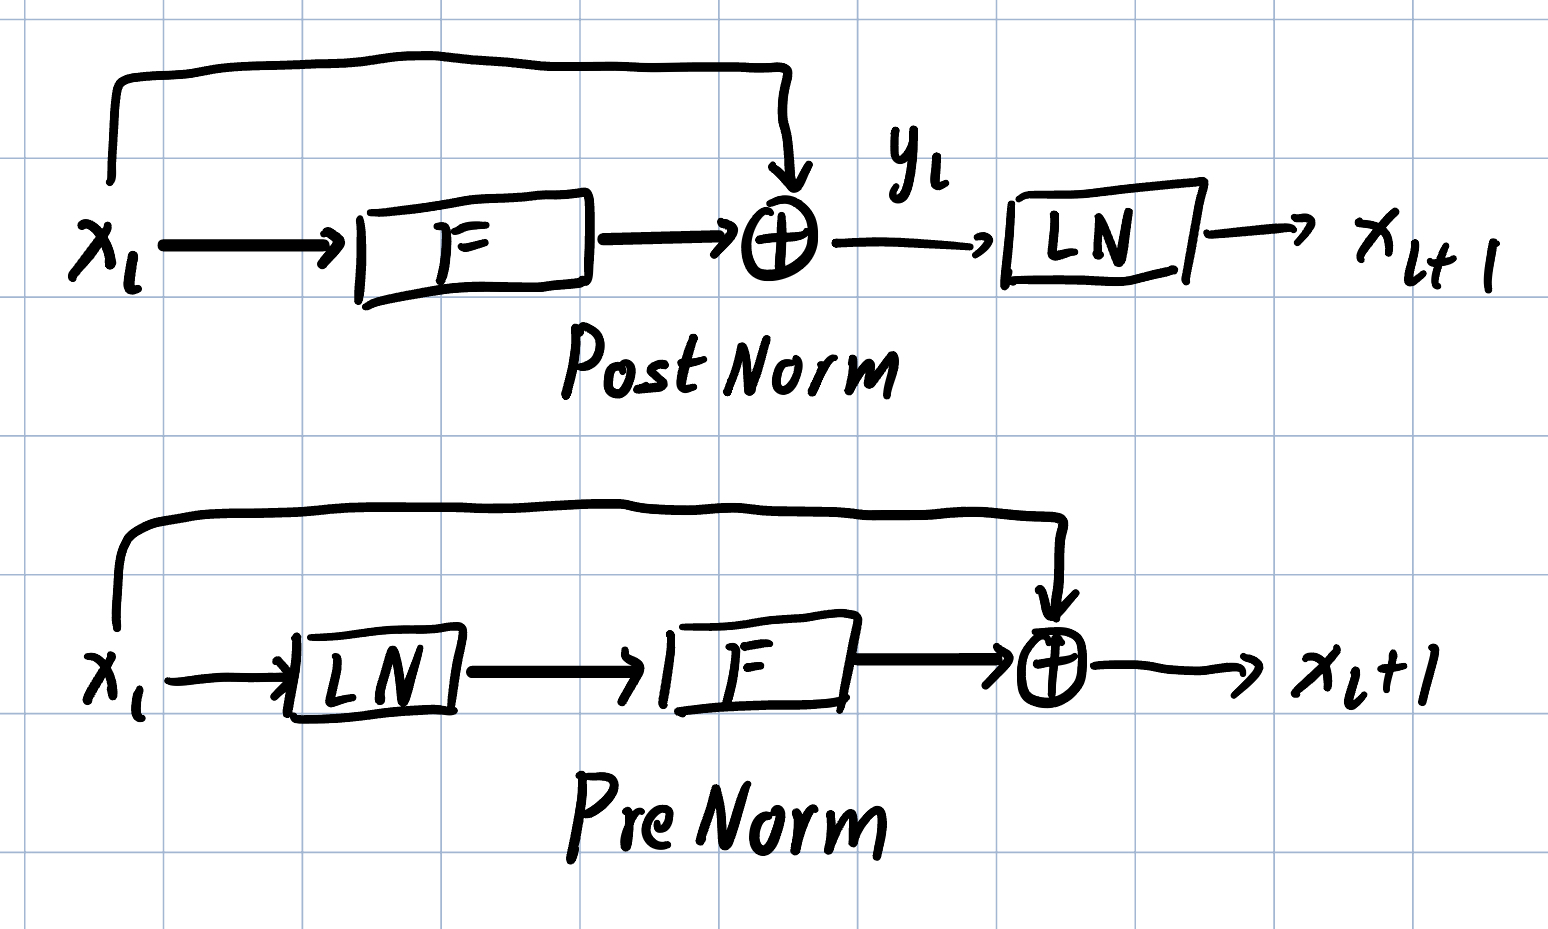 y_l
x_l F ⊕ LN x_{l+1}
Post Norm
x_l LN F ⊕ x_{l+1}
Pre Norm